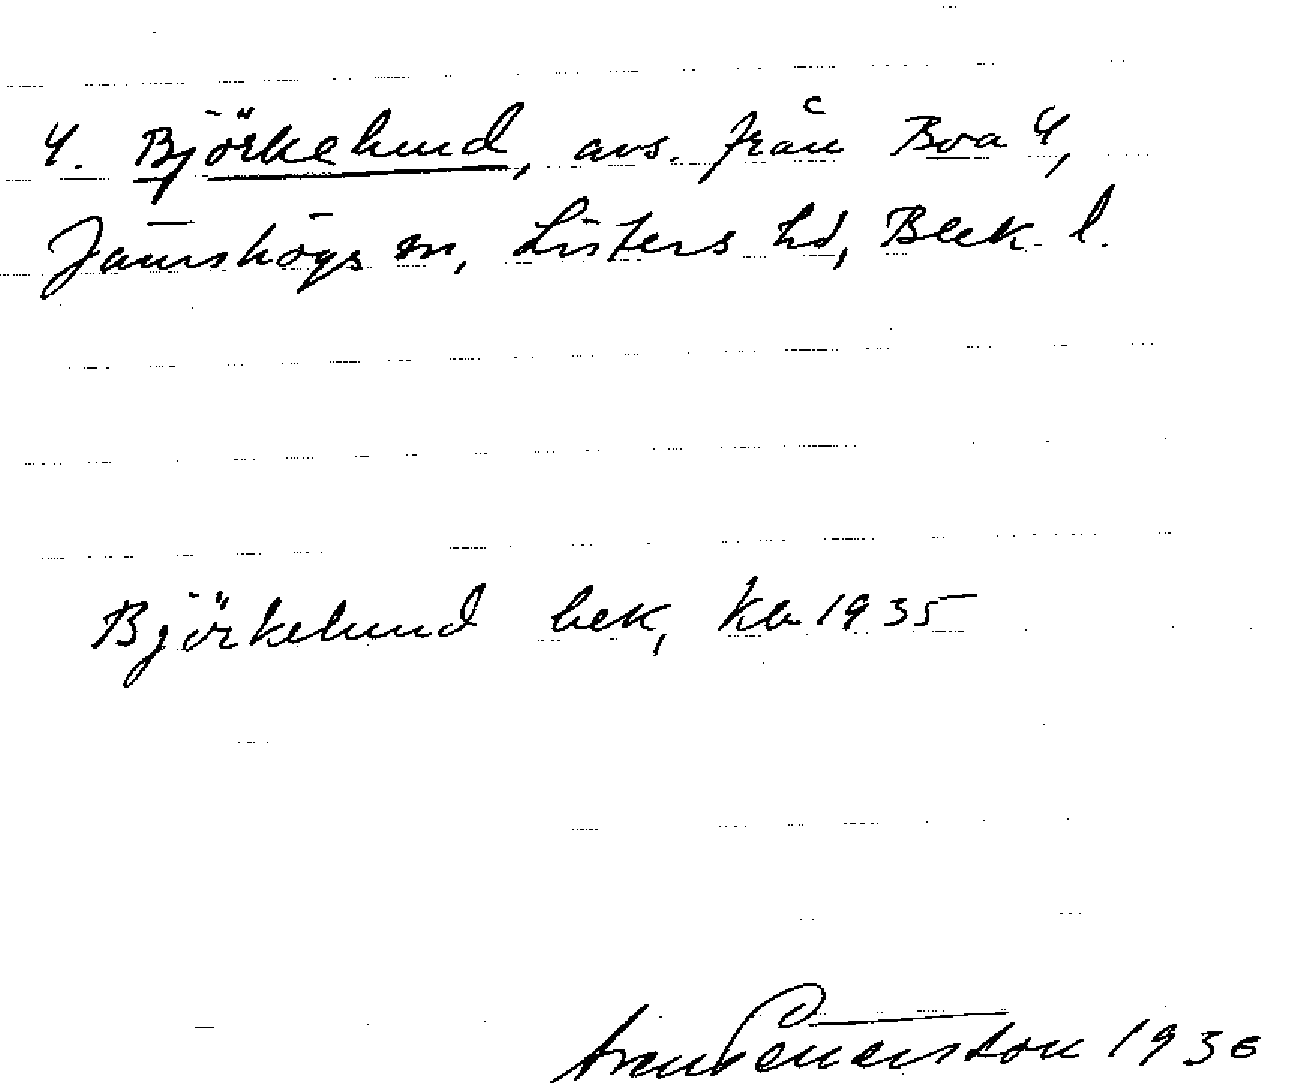 4. Björkelund, avs. från Boa 4,
Jämshögs sn, Listers hd, Blek. l.
Björkelund bek, Kb 1935
Sven Pettersson 1936